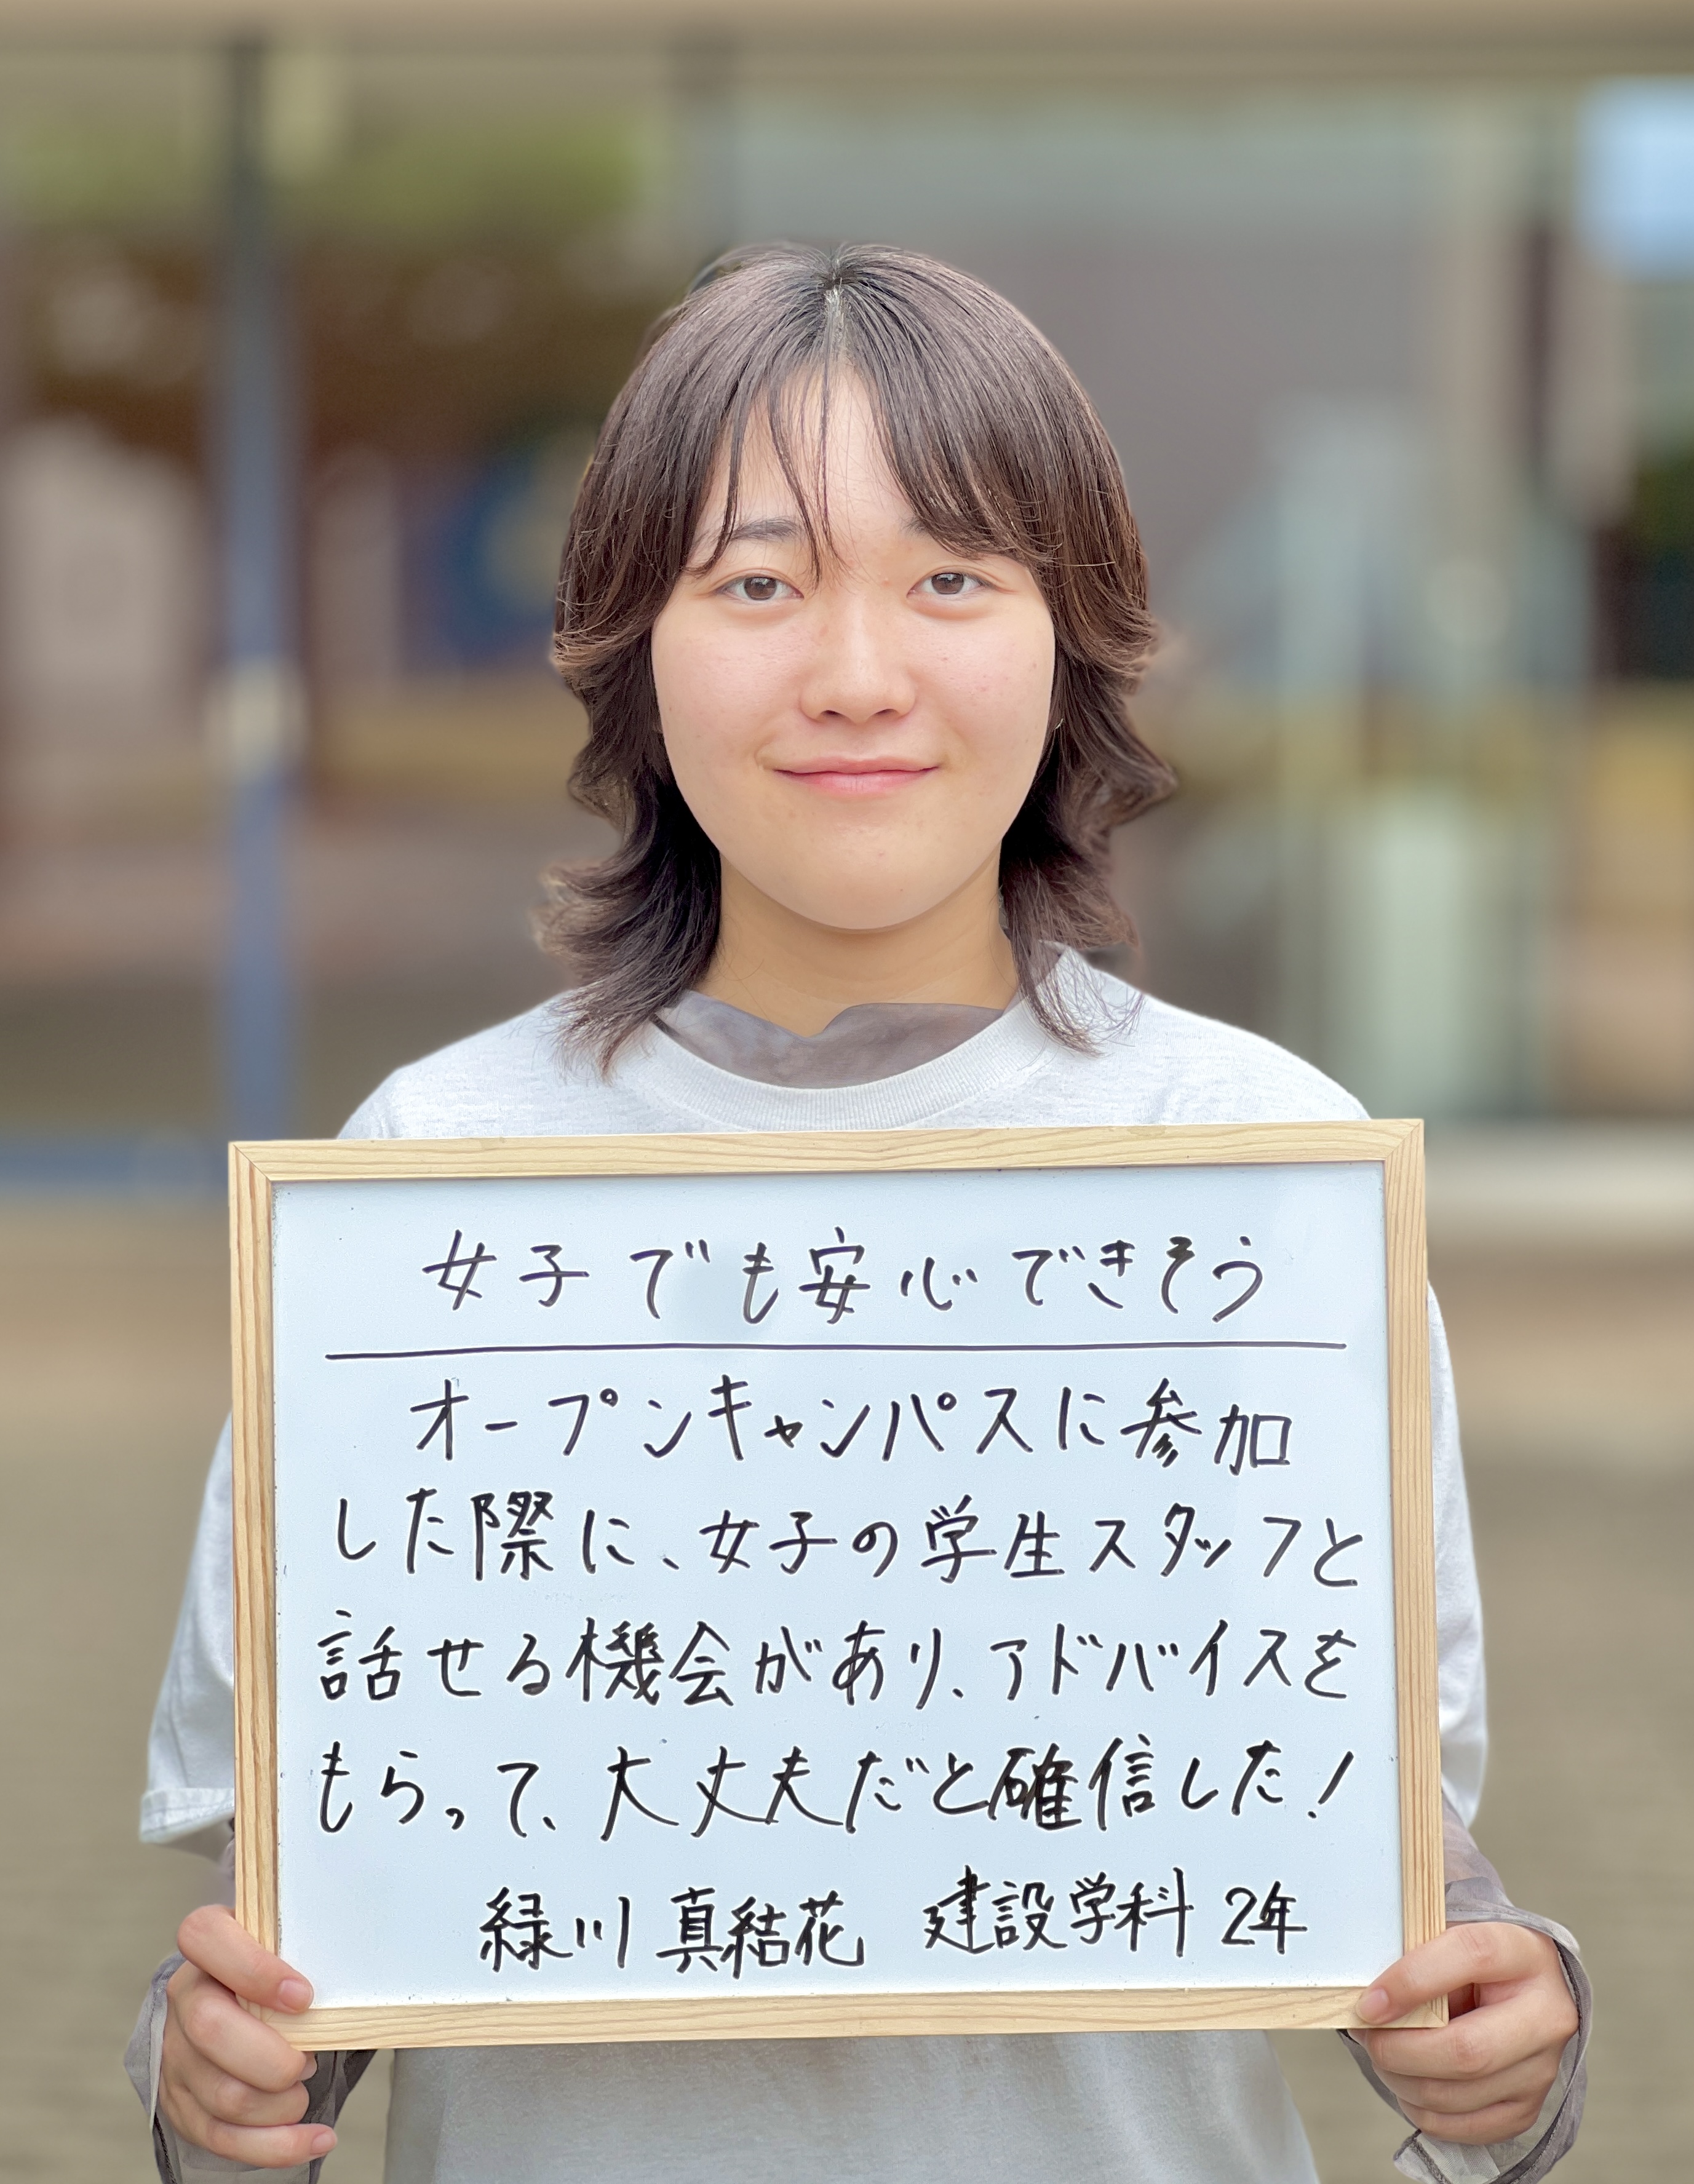 女子でも安心できそう
オープンキャンパスに参加
した際に、女子の学生スタッフと
話せる機会があり、アドバイスを
もらって、大丈夫だと確信した!
緑川 真結花 建設学科 2年